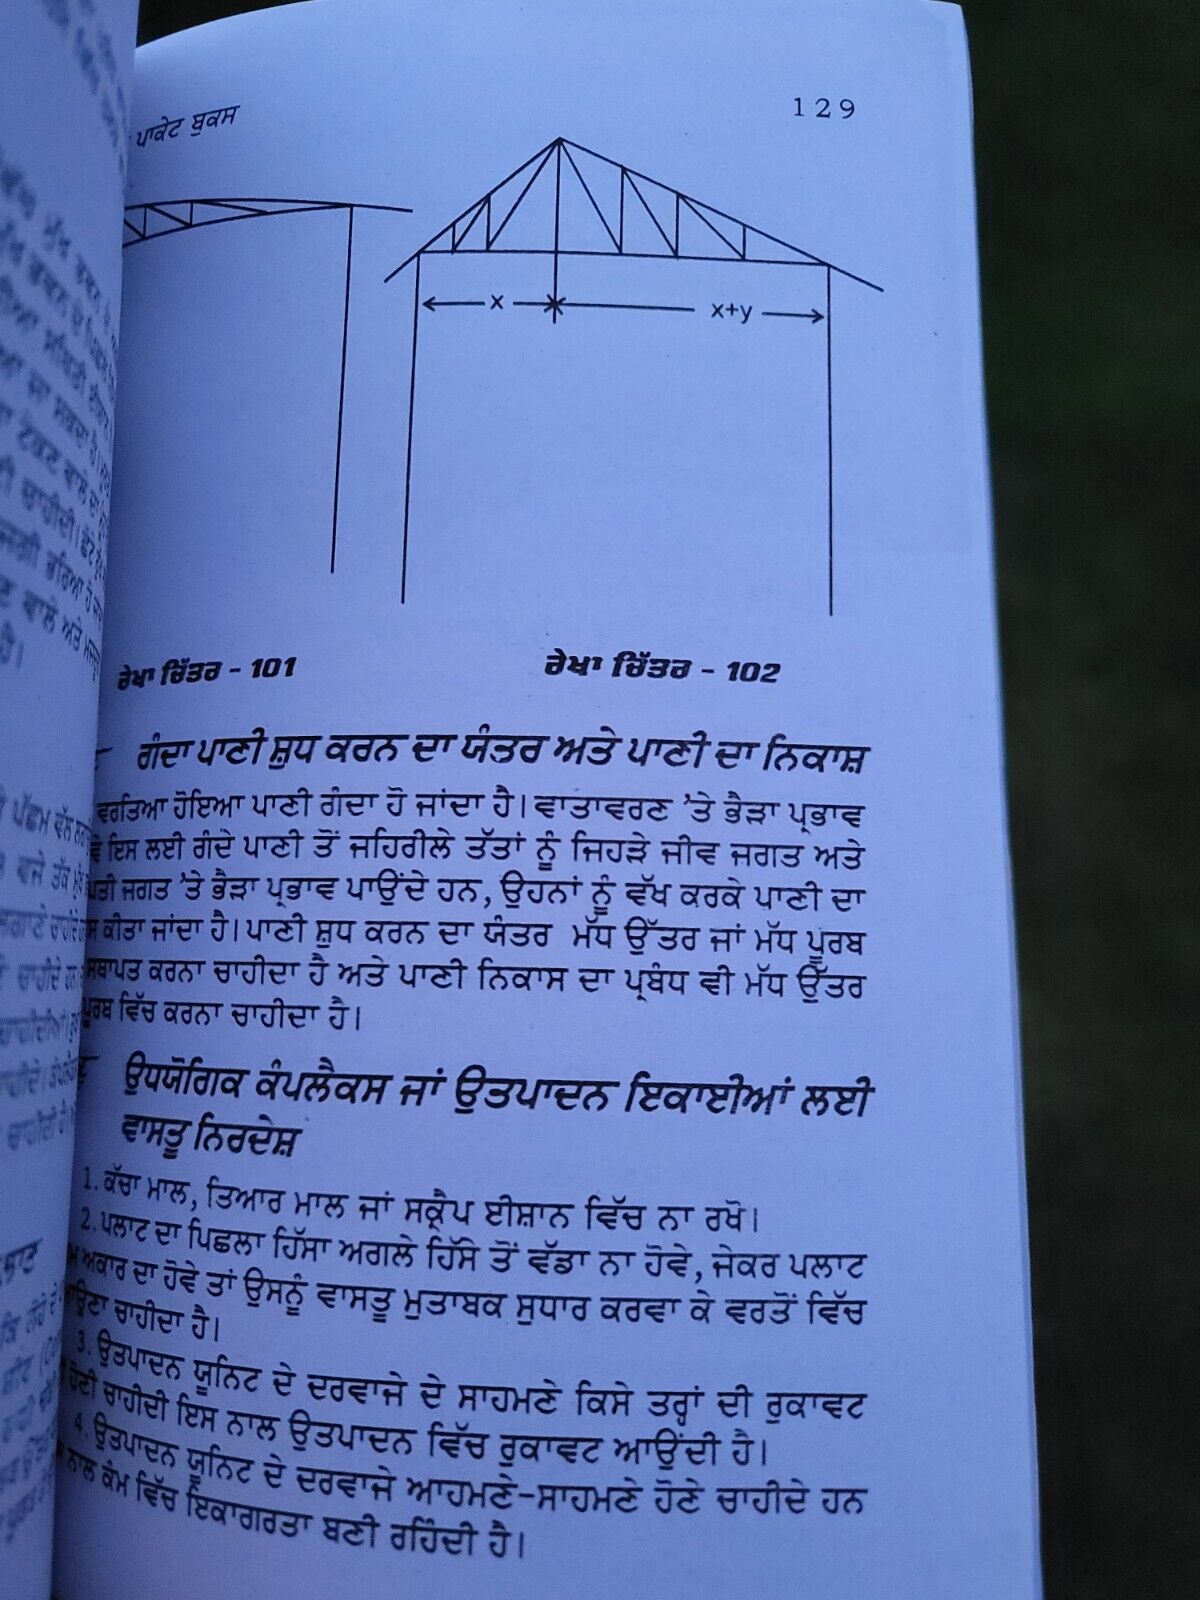 ਪਾਕੇਟ ਬੁਕਸ
129
x
x+y
ਰੇਖਾ ਚਿੱਤਰ - 101
ਰੇਖਾ ਚਿੱਤਰ - 102
ਗੰਦਾ ਪਾਣੀ ਸ਼ੁਧ ਕਰਨ ਦਾ ਯੰਤਰ ਅਤੇ ਪਾਣੀ ਦਾ ਨਿਕਾਸ਼
ਵਰਤਿਆ ਹੋਇਆ ਪਾਣੀ ਗੰਦਾ ਹੋ ਜਾਂਦਾ ਹੈ। ਵਾਤਾਵਰਣ ’ਤੇ ਭੈੜਾ ਪ੍ਰਭਾਵ
ਇਸ ਲਈ ਗੰਦੇ ਪਾਣੀ ਤੋਂ ਜਹਿਰੀਲੇ ਤੱਤਾਂ ਨੂੰ ਜਿਹੜੇ ਜੀਵ ਜਗਤ ਅਤੇ
ਜਗਤ ’ਤੇ ਭੈੜਾ ਪ੍ਰਭਾਵ ਪਾਉਂਦੇ ਹਨ, ਉਹਨਾਂ ਨੂੰ ਵੱਖ ਕਰਕੇ ਪਾਣੀ ਦਾ
ਕੀਤਾ ਜਾਂਦਾ ਹੈ। ਪਾਣੀ ਸ਼ੁਧ ਕਰਨ ਦਾ ਯੰਤਰ ਮੱਧ ਉੱਤਰ ਜਾਂ ਮੱਧ ਪੂਰਬ
ਸਥਾਪਤ ਕਰਨਾ ਚਾਹੀਦਾ ਹੈ ਅਤੇ ਪਾਣੀ ਨਿਕਾਸ ਦਾ ਪ੍ਰਬੰਧ ਵੀ ਮੱਧ ਉੱਤਰ
ਪੂਰਬ ਵਿੱਚ ਕਰਨਾ ਚਾਹੀਦਾ ਹੈ।
ਉਧਯੋਗਿਕ ਕੰਪਲੈਕਸ ਜਾਂ ਉਤਪਾਦਨ ਇਕਾਈਆਂ ਲਈ
ਵਾਸਤੂ ਨਿਰਦੇਸ਼
1. ਕੱਚਾ ਮਾਲ, ਤਿਆਰ ਮਾਲ ਜਾਂ ਸਕ੍ਰੈਪ ਈਸ਼ਾਨ ਵਿੱਚ ਨਾ ਰਖੋ।
2. ਪਲਾਟ ਦਾ ਪਿਛਲਾ ਹਿੱਸਾ ਅਗਲੇ ਹਿੱਸੇ ਤੋਂ ਵੱਡਾ ਨਾ ਹੋਵੇ, ਜੇਕਰ ਪਲਾਟ
ਅਕਾਰ ਦਾ ਹੋਵੇ ਤਾਂ ਉਸਨੂੰ ਵਾਸਤੂ ਮੁਤਾਬਕ ਸੁਧਾਰ ਕਰਵਾ ਕੇ ਵਰਤੋਂ ਵਿੱਚ
ਚਾਹੀਦਾ ਹੈ।
3. ਉਤਪਾਦਨ ਯੂਨਿਟ ਦੇ ਦਰਵਾਜੇ ਦੇ ਸਾਹਮਣੇ ਕਿਸੇ ਤਰ੍ਹਾਂ ਦੀ ਰੁਕਾਵਟ
ਹੋਣੀ ਚਾਹੀਦੀ ਇਸ ਨਾਲ ਉਤਪਾਦਨ ਵਿੱਚ ਰੁਕਾਵਟ ਆਉਂਦੀ ਹੈ।
4. ਉਤਪਾਦਨ ਯੂਨਿਟ ਦੇ ਦਰਵਾਜੇ ਆਹਮਣੇ-ਸਾਹਮਣੇ ਹੋਣੇ ਚਾਹੀਦੇ ਹਨ
ਨਾਲ ਕੰਮ ਵਿੱਚ ਇਕਾਗਰਤਾ ਬਣੀ ਰਹਿੰਦੀ ਹੈ।